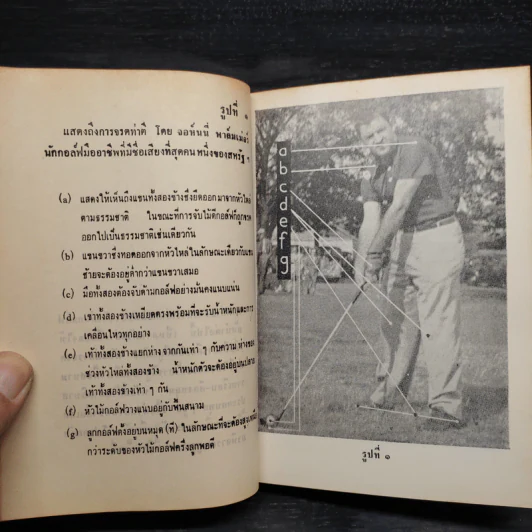 รูปที่ ๑
แสดงถึงการจรดท่าตี โดย จอห์นนี่ พาล์มเม่อร์
นักกอล์ฟมืออาชีพที่มีชื่อเสียงที่สุดคนหนึ่งของสหรัฐ ฯ
(a) แสดงให้เห็นถึงแขนทั้งสองข้างซึ่งยืดออกมาจากหัวไหล่
ตามธรรมชาติ ในขณะที่การจับไม้ตีกอล์ฟก็ถูกขาด
ออกไปเป็นธรรมชาติเช่นเดียวกัน
(b) แขนขวาซึ่งทอดออกจากหัวไหล่ในลักษณะเดียวกับแขน
ซ้ายจะต้องอยู่ต่ำกว่าแขนขวาเสมอ
(c) มือทั้งสองต้องจับด้ามกอล์ฟอย่างมั่นคงแนบแน่น
(d) เข่าทั้งสองข้างเหยียดตรงพร้อมที่จะรับน้ำหนักและการ
เคลื่อนไหวทุกอย่าง
(e) เท้าทั้งสองข้างแยกห่างจากกันเท่า ๆ กับความห่างของ
ช่วงหัวไหล่ทั้งสองข้าง น้ำหนักตัวจะต้องอยู่บน
เท้าทั้งสองข้างเท่า ๆ กัน
(f) หัวไม้กอล์ฟวางแนบอยู่กับพื้นสนาม
(g) ลูกกอล์ฟตั้งอยู่บนหมุด (ที) ในลักษณะที่จะต้องสูง
กว่าระดับของหัวไม้กอล์ฟครึ่งลูกพอดี
a
b
c
d
e
f
g
รูปที่ ๑